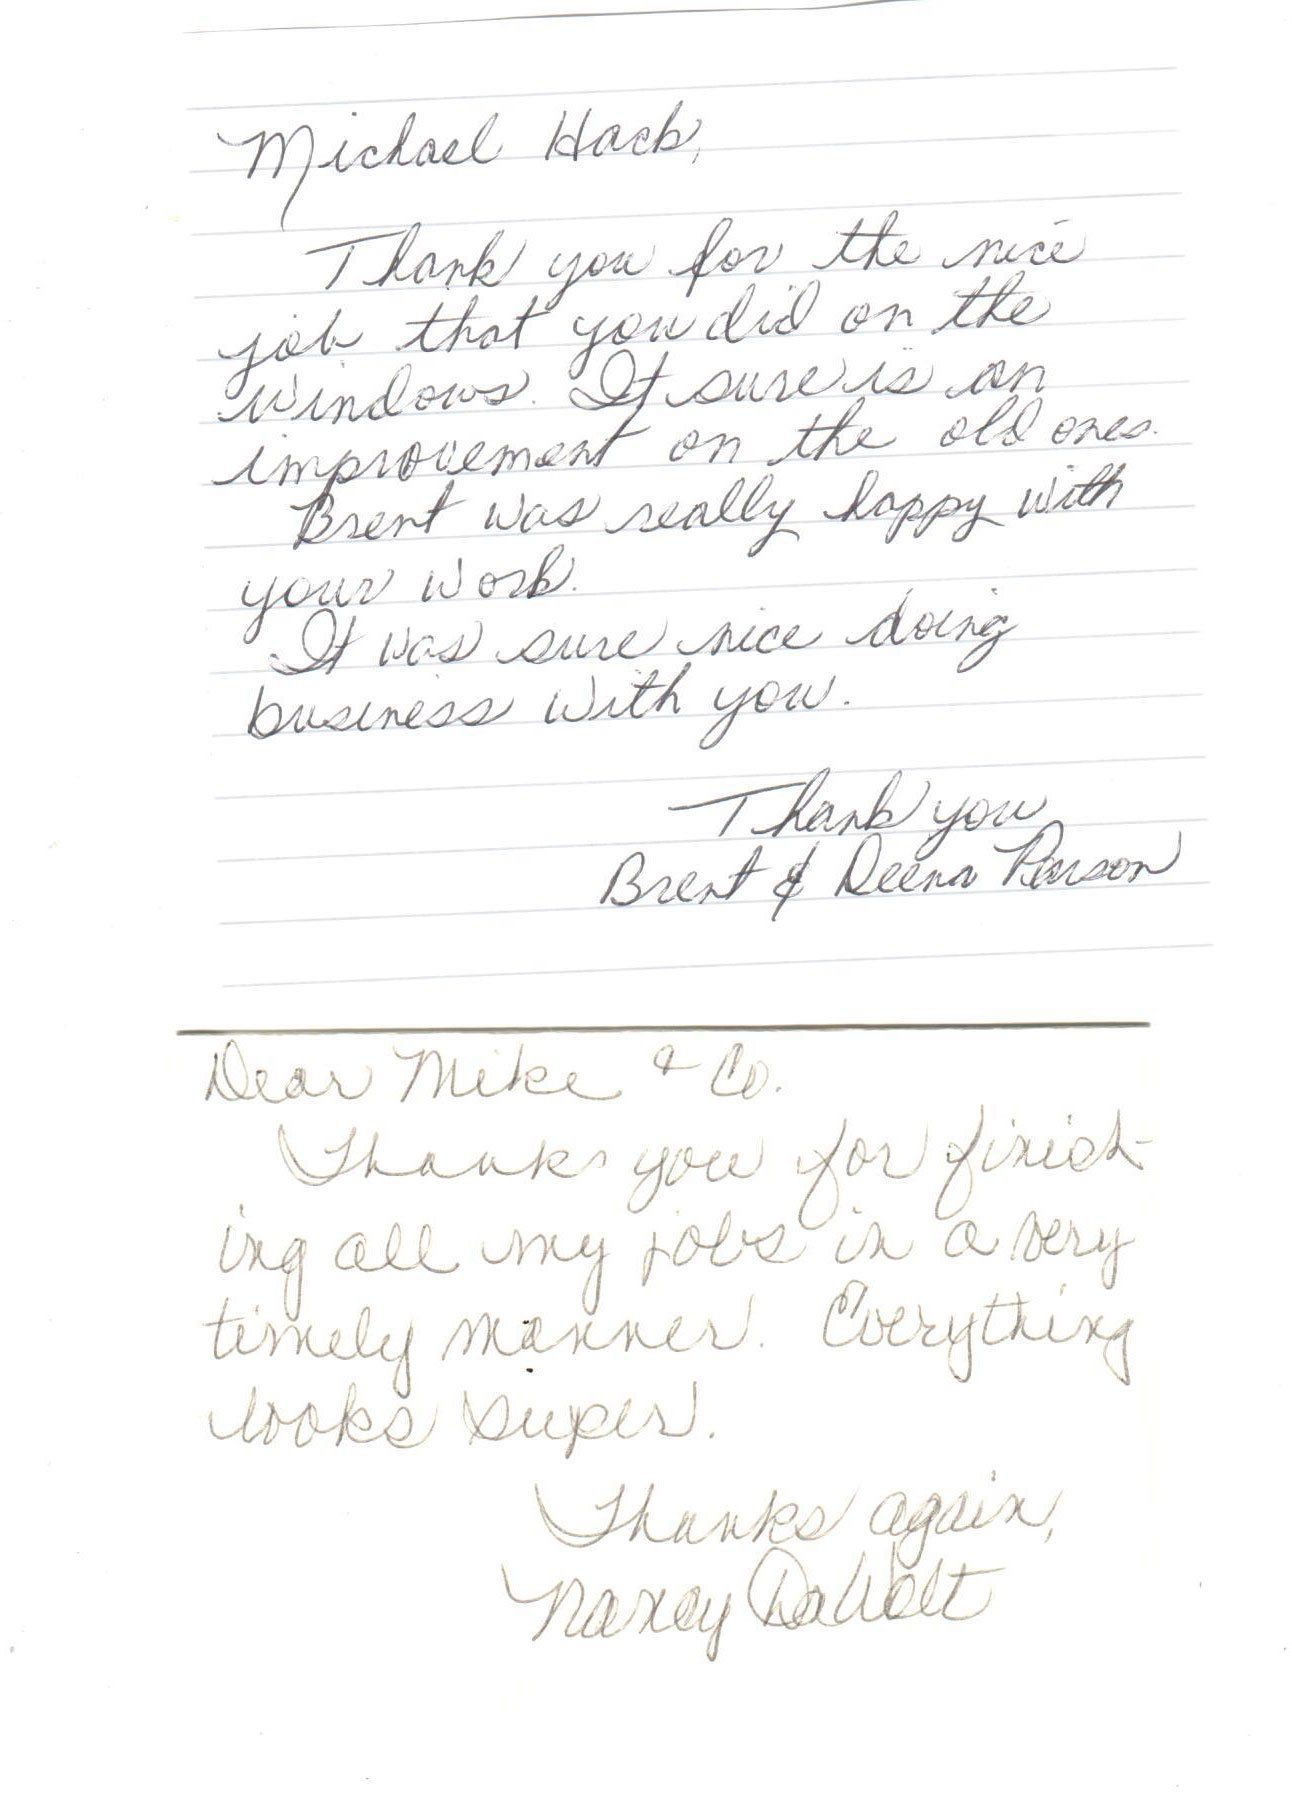 Michael Hack,
Thank you for the nice
job that you did on the
windows. It sure is an
improvement on the old ones.
Brent was really happy with
your work.
It was sure nice doing
business with you.
Thank you
Brent & Deena
Dear Mike & Co.
Thank you for finish-
ing all my jobs in a very
timely manner. Everything
looks super.
Thanks again,
Nancy